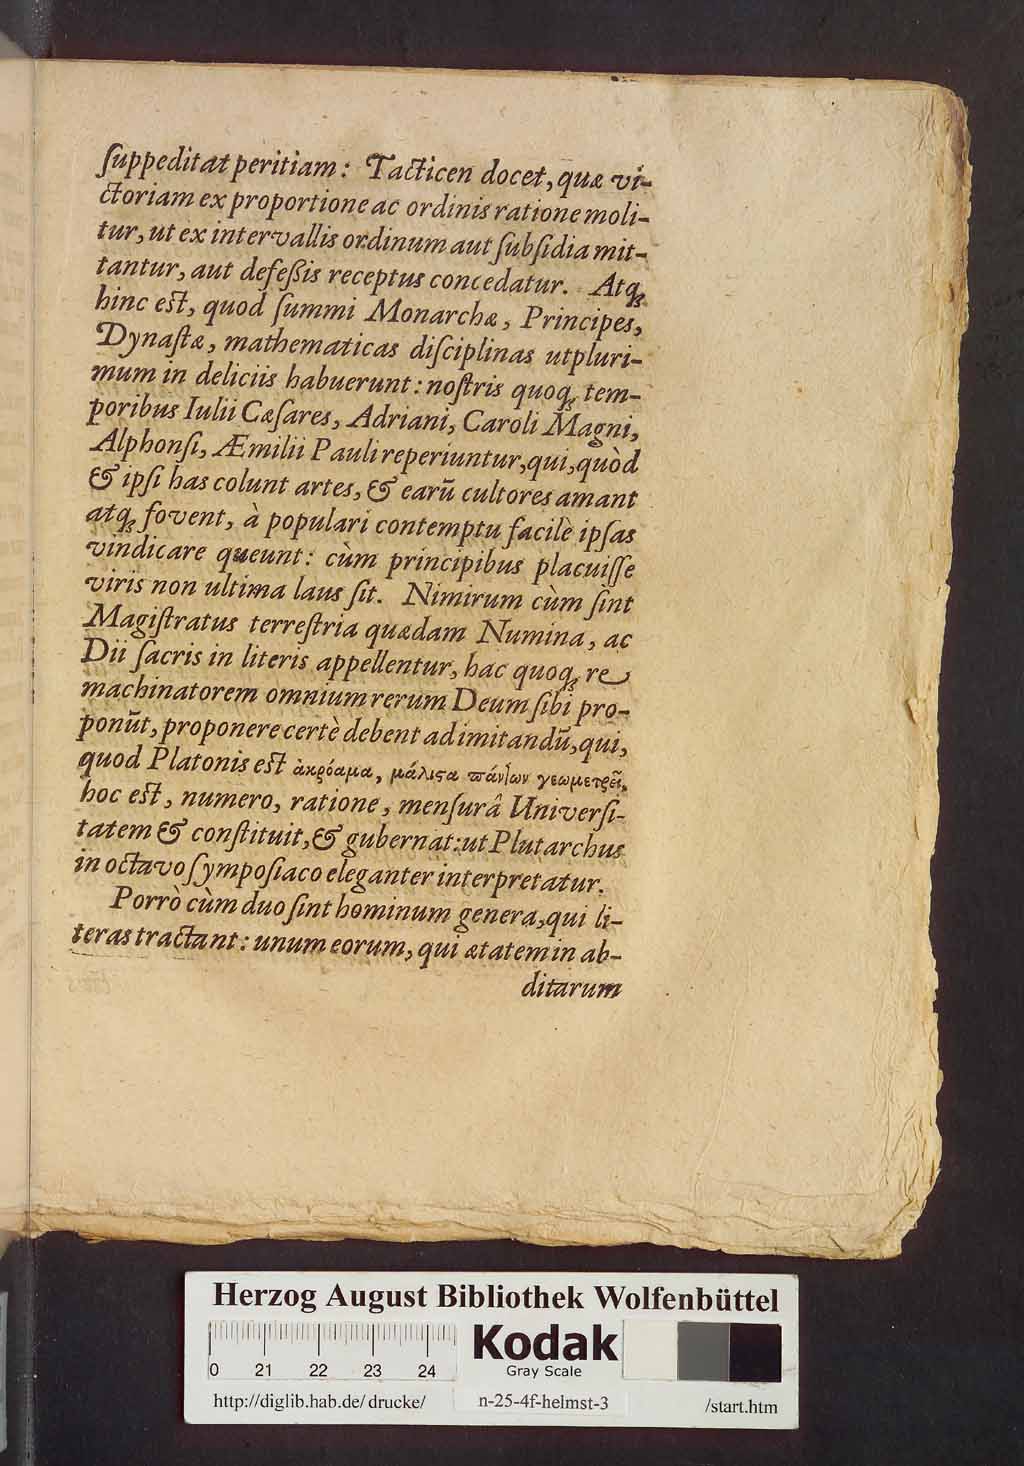 ſuppeditat peritiam: Tacticen docet, quæ vi-
ctoriam ex proportione ac ordinis ratione moli-
tur, ut ex intervallis ordinum aut ſubſidia mit-
tantur, aut defeßis receptus concedatur. Atq́ꝫ
hinc eſt, quod ſummi Monarchæ, Principes,
Dynaſtæ, mathematicas diſciplinas utpluri-
mum in deliciis habuerunt: noſtris quoqꝫ tem-
poribus Iulii Cæſares, Adriani, Caroli Magni,
Alphonſi, Æmilii Pauli reperiuntur, qui, quòd
& ipſi has colunt artes, & earũ cultores amant
atqꝫ fovent, à populari contemptu facilè ipſas
vindicare queunt: cùm principibus placuiſſe
viris non ultima laus ſit. Nimirum cùm ſint
Magiſtratus terreſtria quædam Numina, ac
Dii ſacris in literis appellentur, hac quoqꝫ re
machinatorem omnium rerum Deum ſibi pro-
ponũt, proponere certè debent ad imitandũ, qui,
quod Platonis eſt ἀκρόαμα, μάλιϛα πάντων γεωμετρεῖ,
hoc eſt, numero, ratione, menſurâ Univerſi-
tatem & conſtituit, & gubernat: ut Plutarchus
in octavo ſympoſiaco eleganter interpretatur.
Porrò cùm duo ſint hominum genera, qui li-
teras tractant: unum eorum, qui ætatem in ab-
ditarum
Herzog August Bibliothek Wolfenbüttel
0 21 22 23 24
Kodak
Gray Scale
http://diglib.hab.de/drucke/ n-25-4f-helmst-3 /start.htm